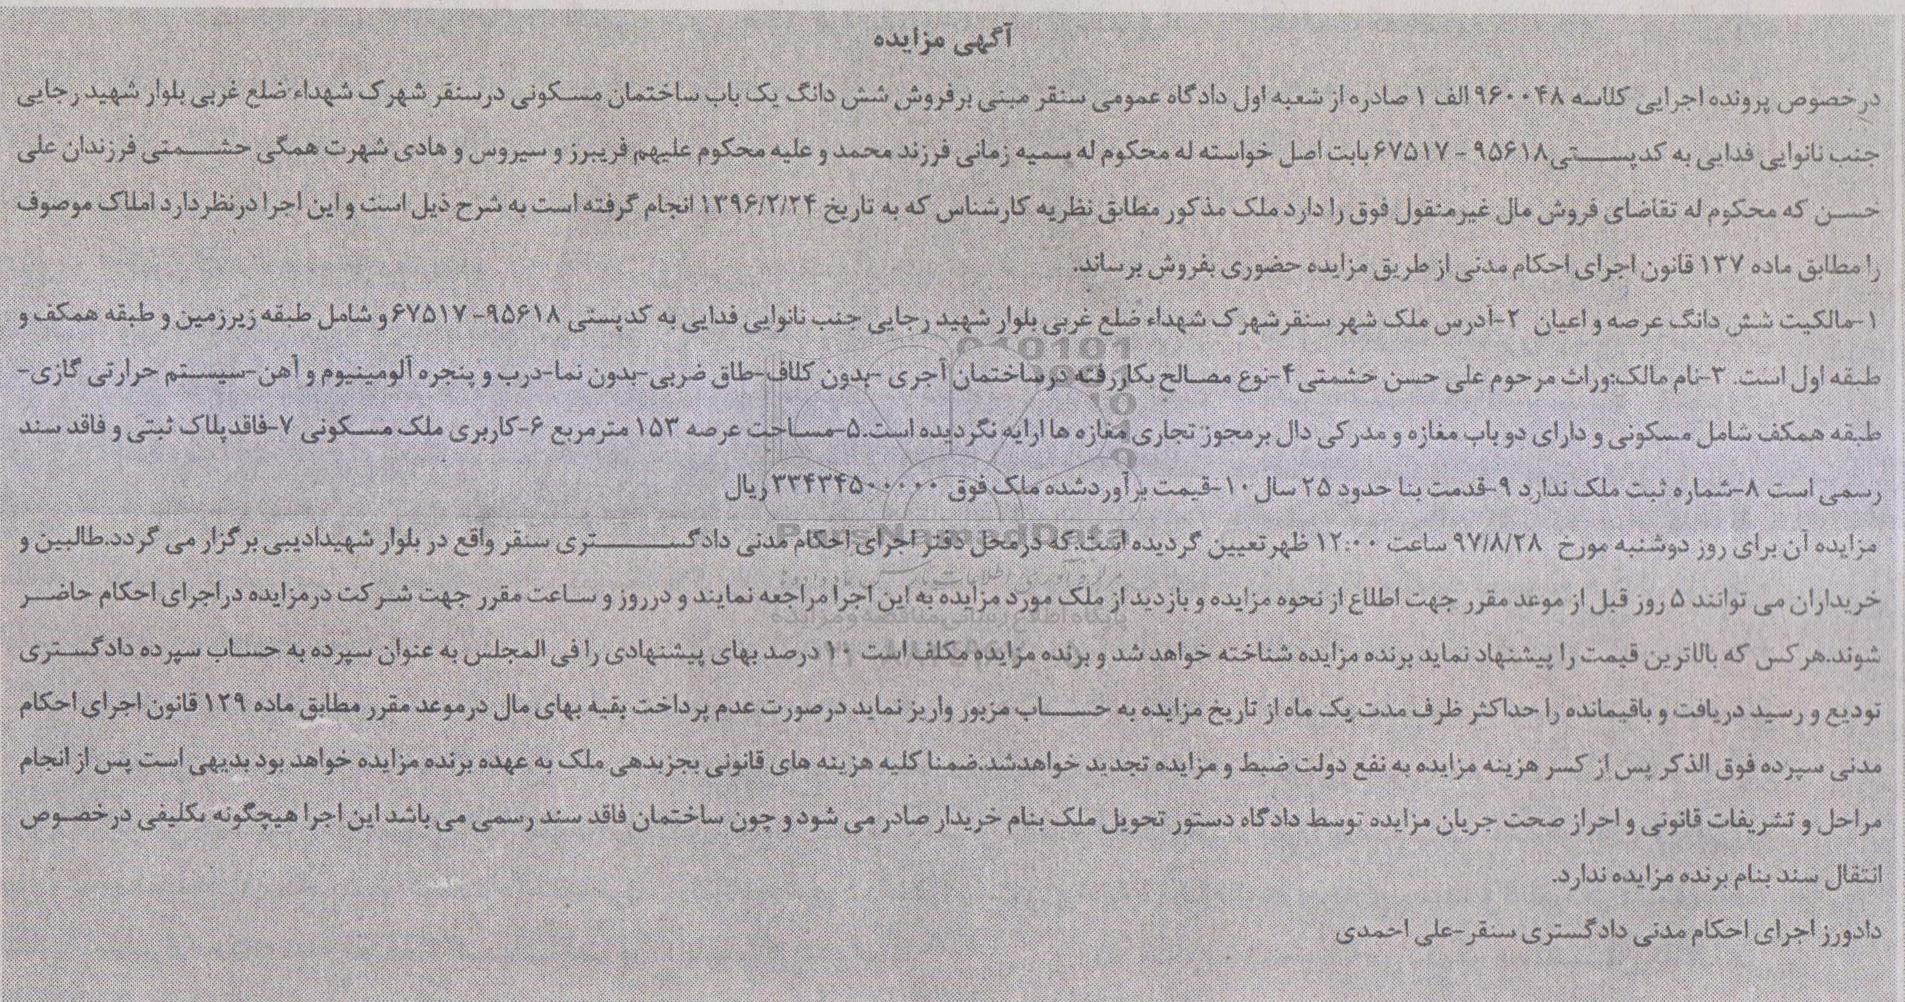 آگهی مزایده
درخصوص پرونده اجرایی کلاسه ۹۶۰۰۴۸ الف ۱ صادره از شعبه اول دادگاه عمومی سنقر مبنی برفروش شش دانگ یک باب ساختمان مسکونی درسنقر شهرک شهداء ضلع غربی بلوار شهید رجایی
جنب نانوایی فدایی به کدپستی۹۵۶۱۸ - ۶۷۵۱۷ بابت اصل خواسته له محکوم له سمیه زمانی فرزند محمد و علیه محکوم علیهم فریبرز و سیروس و هادی شهرت همگی حشمتی فرزندان علی
حسن که محکوم له تقاضای فروش مال غیرمنقول فوق را دارد ملک مذکور مطابق نظریه کارشناس که به تاریخ ۱۳۹۶/۲/۲۴ انجام گرفته است به شرح ذیل است و این اجرا درنظردارد املاک موصوف
را مطابق ماده ۱۳۷ قانون اجرای احکام مدنی از طریق مزایده حضوری بفروش برساند.
۱-مالکیت شش دانگ عرصه و اعیان ۲-آدرس ملک شهر سنقرشهرک شهداء ضلع غربی بلوار شهید رجایی جنب نانوایی فدایی به کدپستی ۹۵۶۱۸- ۶۷۵۱۷ و شامل طبقه زیرزمین و طبقه همکف و
طبقه اول است. ۳-نام مالک:وراث مرحوم علی حسن حشمتی ۴-نوع مصالح بکاررفته درساختمان آجری -بدون کلاف-طاق ضربی-بدون نما-درب و پنجره آلومینیوم و آهن-سیستم حرارتی گازی-
طبقه همکف شامل مسکونی و دارای دو باب مغازه و مدرکی دال برمجوز تجاری مغازه ها ارایه نگردیده است.۵-مساحت عرصه ۱۵۳ مترمربع ۶-کاربری ملک مسکونی ۷-فاقدپلاک ثبتی و فاقد سند
رسمی است ۸-شماره ثبت ملک ندارد ۹-قدمت بنا حدود ۲۵ سال ۱۰-قیمت برآوردشده ملک فوق ۳۳۴۳۴۵۰۰۰۰۰ ریال
مزایده آن برای روز دوشنبه مورخ ۹۷/۸/۲۸ ساعت ۱۲:۰۰ ظهرتعیین گردیده است.که درمحل دفتر اجرای احکام مدنی دادگستری سنقر واقع در بلوار شهیدادیبی برگزار می گردد.طالبین و
خریداران می توانند ۵ روز قبل از موعد مقرر جهت اطلاع از نحوه مزایده و بازدید از ملک مورد مزایده به این اجرا مراجعه نمایند و درروز و ساعت مقرر جهت شرکت درمزایده دراجرای احکام حاضر
شوند.هرکس که بالاترین قیمت را پیشنهاد نماید برنده مزایده شناخته خواهد شد و برنده مزایده مکلف است ۱۰ درصد بهای پیشنهادی را فی المجلس به عنوان سپرده به حساب سپرده دادگستری
تودیع و رسید دریافت و باقیمانده را حداکثر ظرف مدت یک ماه از تاریخ مزایده به حساب مزبور واریز نماید درصورت عدم پرداخت بقیه بهای مال درموعد مقرر مطابق ماده ۱۲۹ قانون اجرای احکام
مدنی سپرده فوق الذکر پس از کسر هزینه مزایده به نفع دولت ضبط و مزایده تجدید خواهدشد.ضمنا کلیه هزینه های قانونی بجزبدهی ملک به عهده برنده مزایده خواهد بود بدیهی است پس از انجام
مراحل و تشریفات قانونی و احراز صحت جریان مزایده توسط دادگاه دستور تحویل ملک بنام خریدار صادر می شود و چون ساختمان فاقد سند رسمی می باشد این اجرا هیچگونه تکلیفی درخصوص
انتقال سند بنام برنده مزایده ندارد.
دادورز اجرای احکام مدنی دادگستری سنقر-علی احمدی